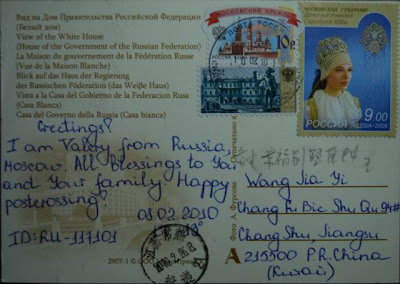 Вид на Дом Правительства Российской Федерации
(Белый дом)
View of the White House
(House of the Government of the Russian Federation)
La Maison du gouvernement de la Fédération Russe
(Vue de la Maison Blanche)
Blick auf das Haus der Regierung
der Russischen Föderation (das Weiße Haus)
Vista a la Casa del Gobierno de la Federacion Rusa
(Casa Blanca)
Casa del Governo della Russia (Casa bianca)
МОСКОВСКИЙ КРЕМЛЬ
РОССИЯ
10р
РОССИЯ
9.00
РОССИЯ
Greetings!
I am Valery from Russia,
Moscow. All blessings to You
and Your family. Happy
postcrossing!
03.02.2010
ID:RU-117101
Wang Jia Yi
Chang Fu Bie Shu Qu 94#
Chang Shu, Jiangsu
215500 P.R. China
(Китай)
А
Фото А.
2907-1